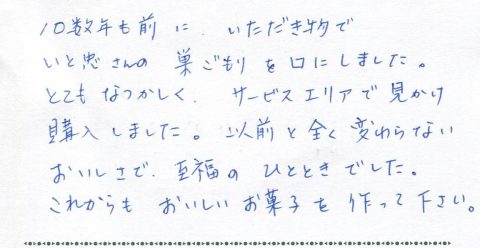 10数年も前に、いただき物で
いと忠さんの 巣ごもり を口にしました。
とてもなつかしく、サービスエリアで見かけ
購入しました。以前と全く変わらない
おいしさで、至福のひとときでした。
これからも おいしいお菓子を作って下さい。